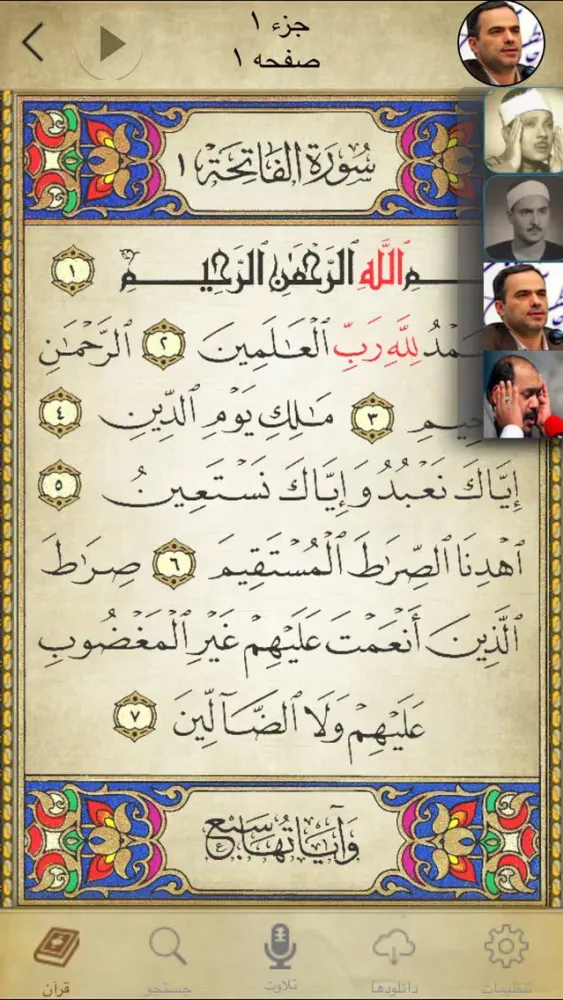 جزء ۱
صفحه ۱
سُورَةُ الفَاتِحَة ١
ـمِ ٱللَّهِ ٱلرَّحْمَٰنِ ٱلرَّحِيمِ ۝١
ـمْدُ لِلَّهِ رَبِّ ٱلْعَٰلَمِينَ ۝٢ ٱلرَّحْمَٰنِ
ـحِيمِ ۝٣ مَٰلِكِ يَوْمِ ٱلدِّينِ ۝٤
إِيَّاكَ نَعْبُدُ وَإِيَّاكَ نَسْتَعِينُ ۝٥
ٱهْدِنَا ٱلصِّرَٰطَ ٱلْمُسْتَقِيمَ ۝٦ صِرَٰطَ
ٱلَّذِينَ أَنْعَمْتَ عَلَيْهِمْ غَيْرِ ٱلْمَغْضُوبِ
عَلَيْهِمْ وَلَا ٱلضَّآلِّينَ ۝٧
وَآيَاتُهَا سَبْع
قرآن جستجو تلاوت دانلودها تنظیمات